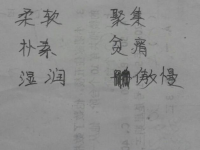 柔软 聚集
朴素 贫瘠
湿润 傲慢